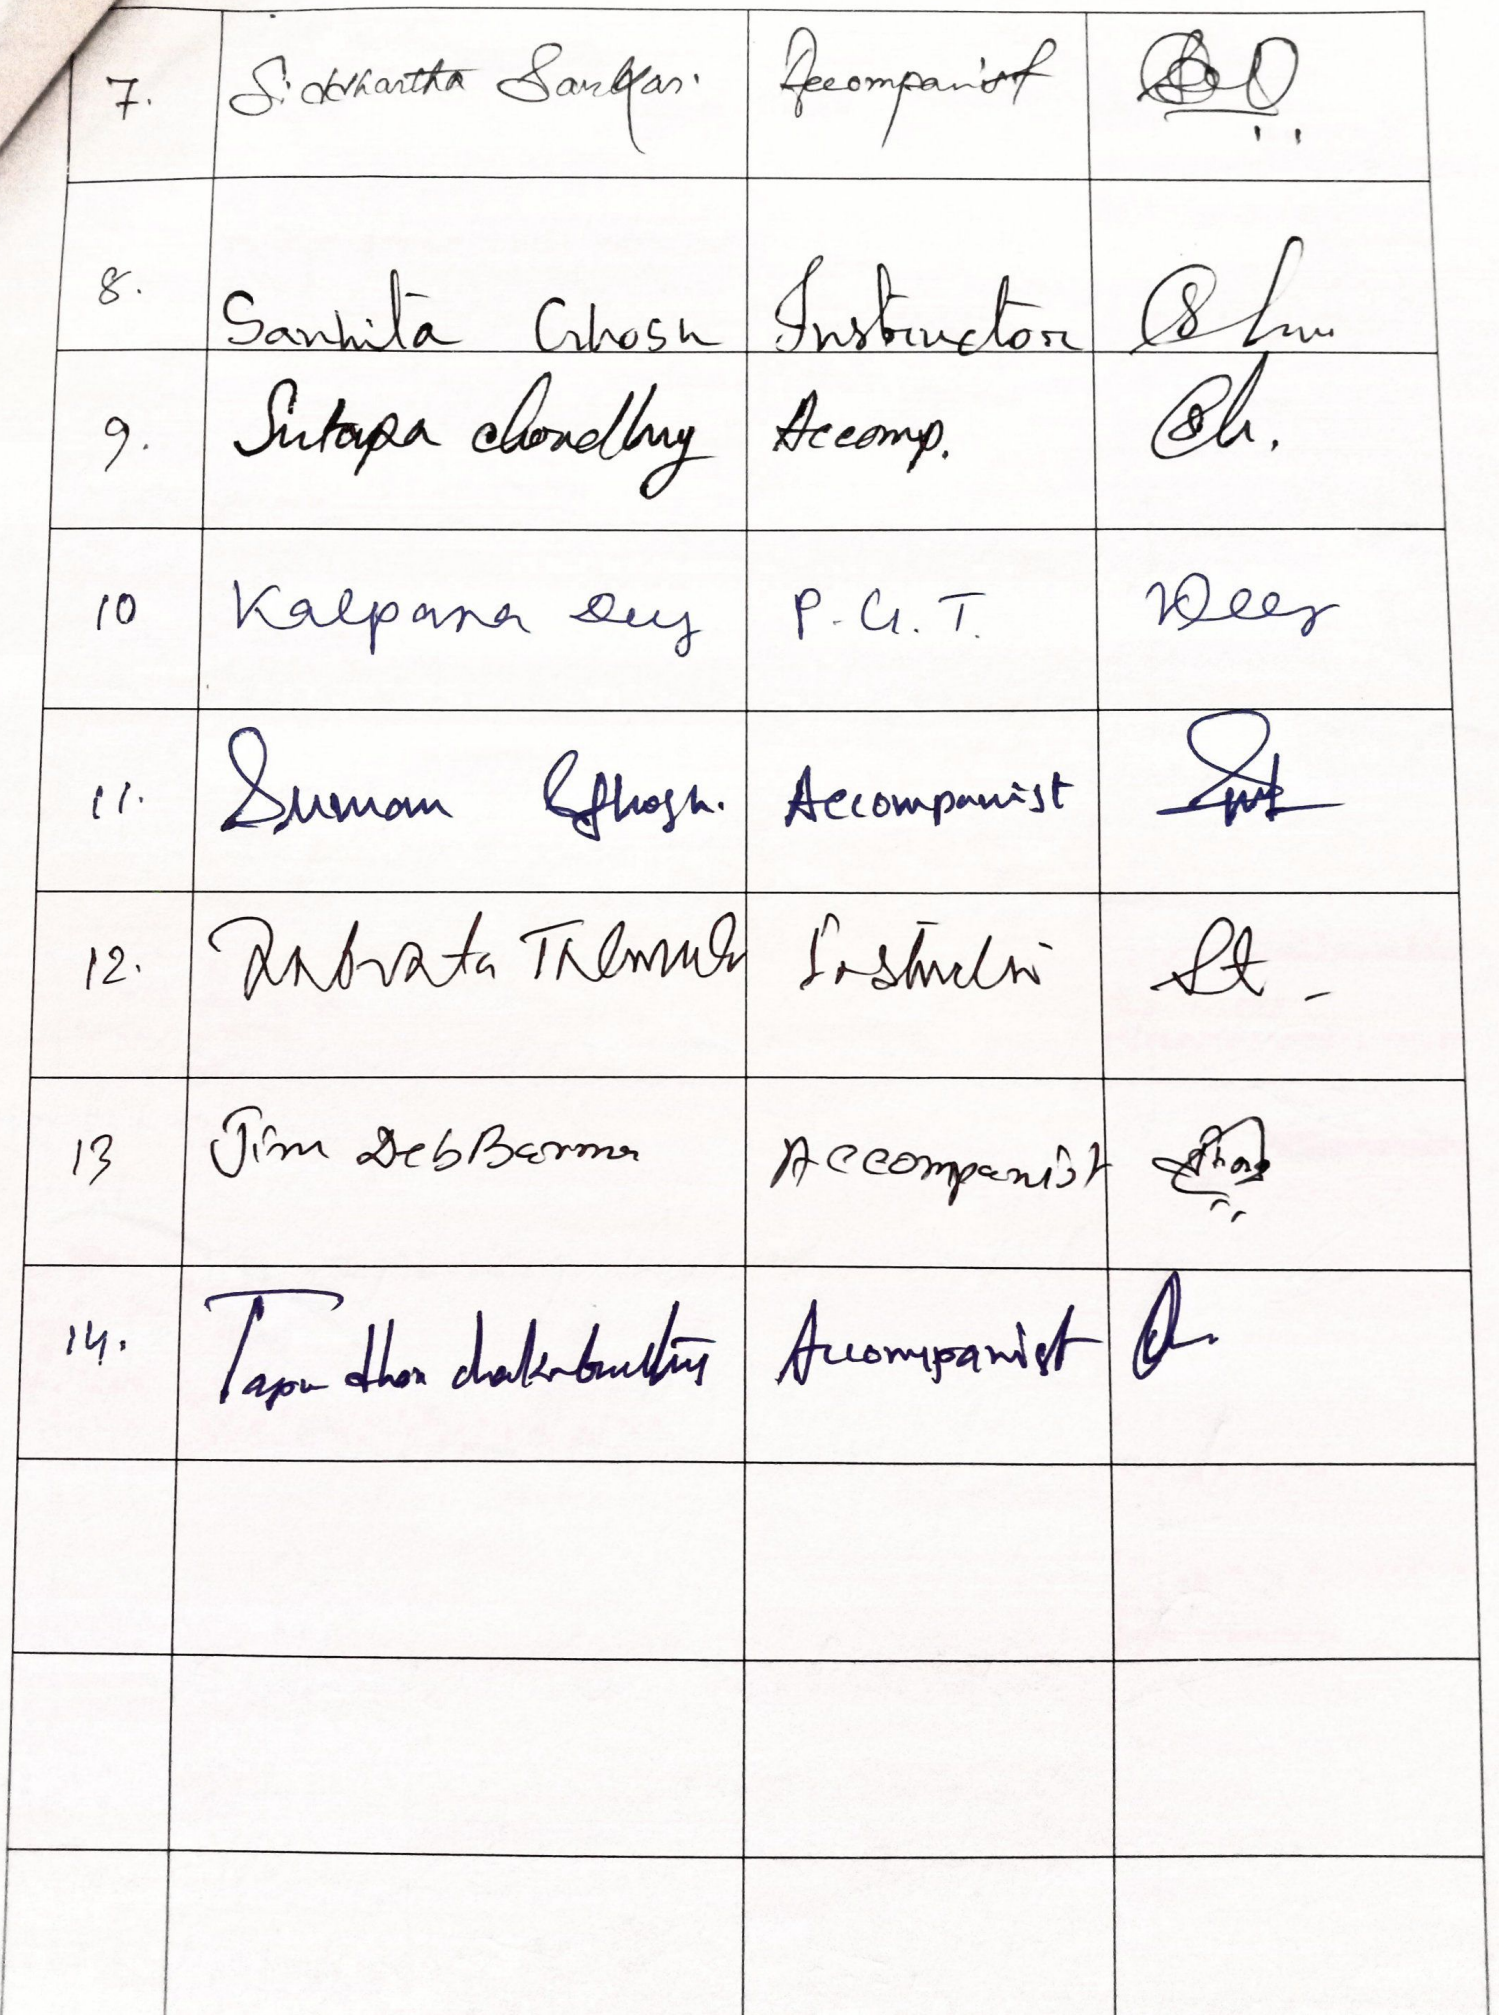 7. Siddhartha Sarkar. Accompanist
8. Sanhita Ghosh Instructor
9. Sutapa Choudhury Accomp.
10 Kalpana Dey P.G.T. Dey
11. Suman Ghosh. Accompanist
12. Instructor
13 Jim DebBarma Accompanist
14. Tapan dhan chakraburtty Accompanist